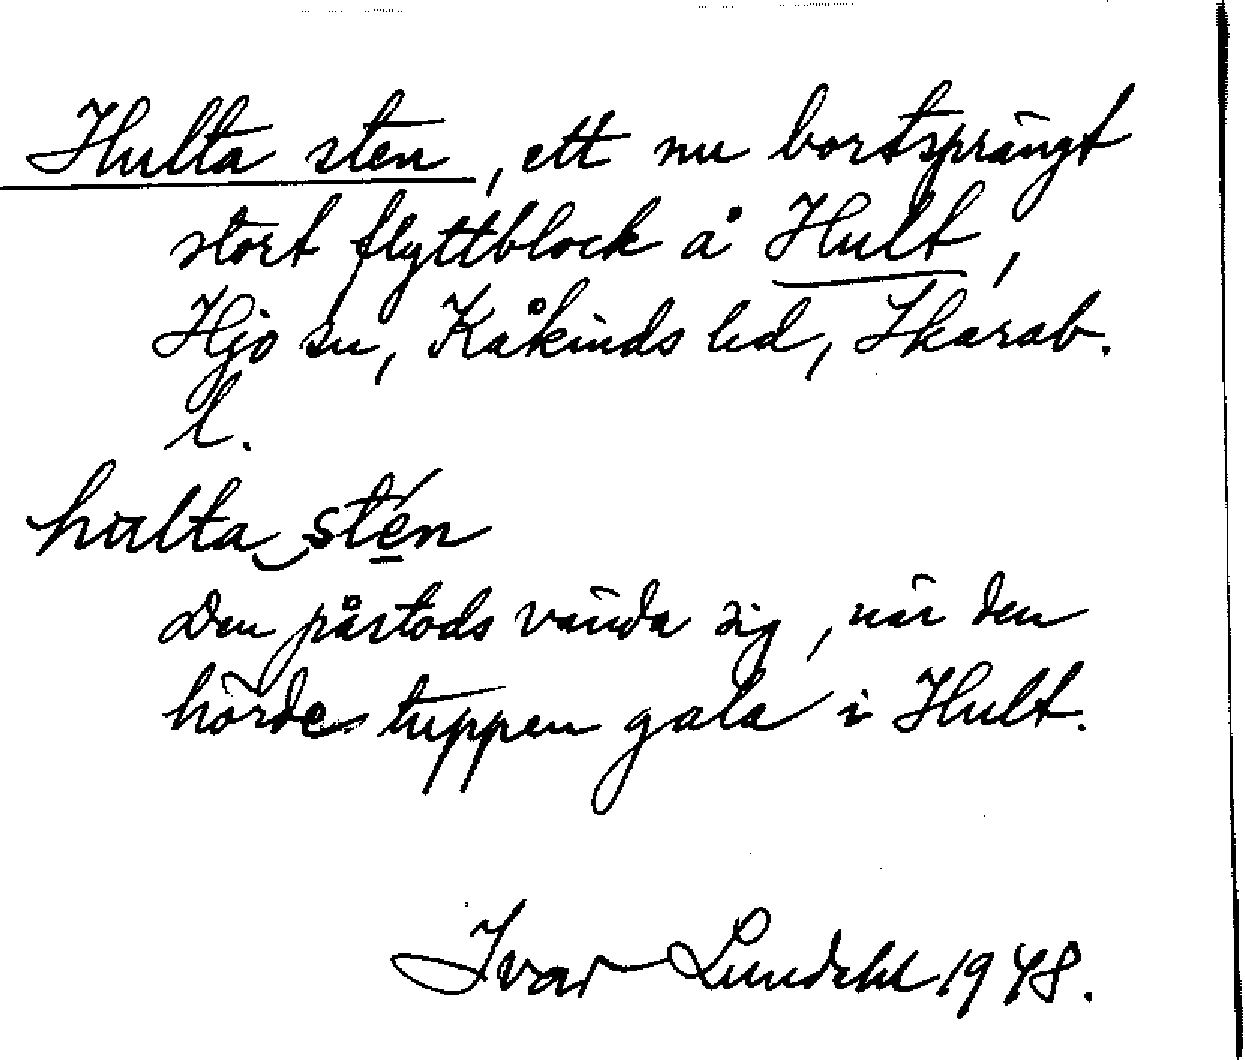 Hulta sten, ett nu bortsprängt
stort flyttblock å Hult,
Hjo sn, Kåkinds hd, Skarab.
l.
hulta stén
Den påstods vända sig, när den
hörde tuppen gala i Hult.
Ivar Lundahl 1948.